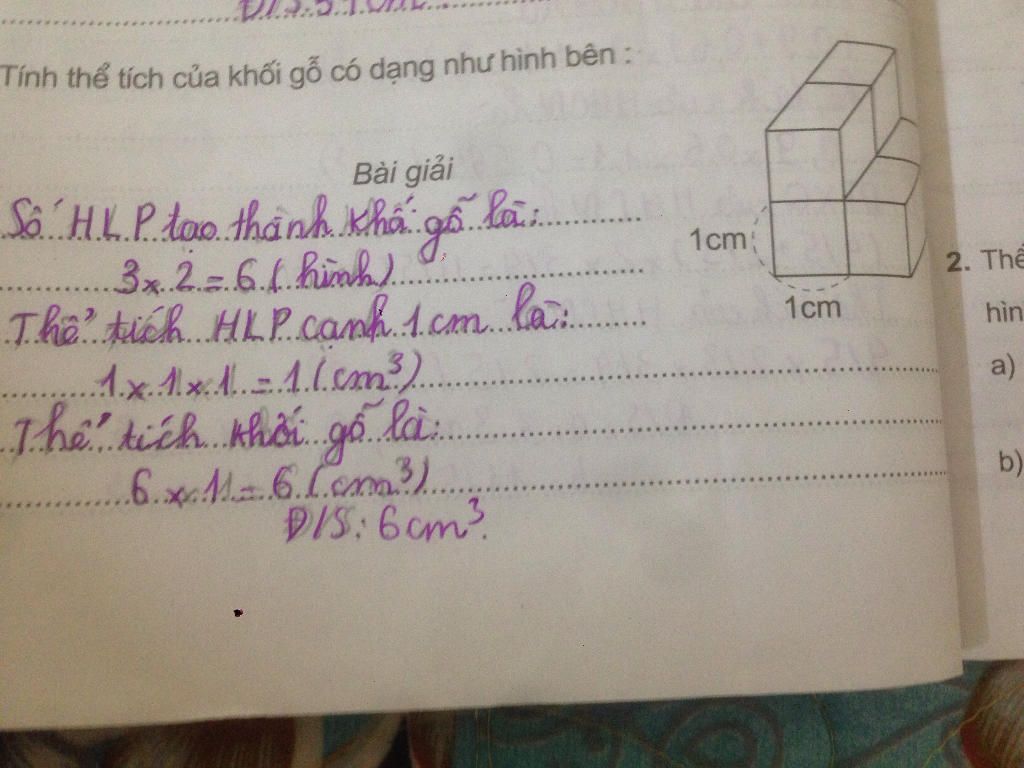 Đ/S:
Tính thể tích của khối gỗ có dạng như hình bên :
Bài giải
Số HLP tạo thành khối gỗ là:
3 x 2 = 6 ( hình )
Thể tích HLP cạnh 1cm là:
1 x 1 x 1 = 1 ( cm³ )
Thể tích khối gỗ là:
6 x 1 = 6 ( cm³ )
Đ/S: 6cm³.
1cm
1cm
2. Thể
hìn
a)
b)